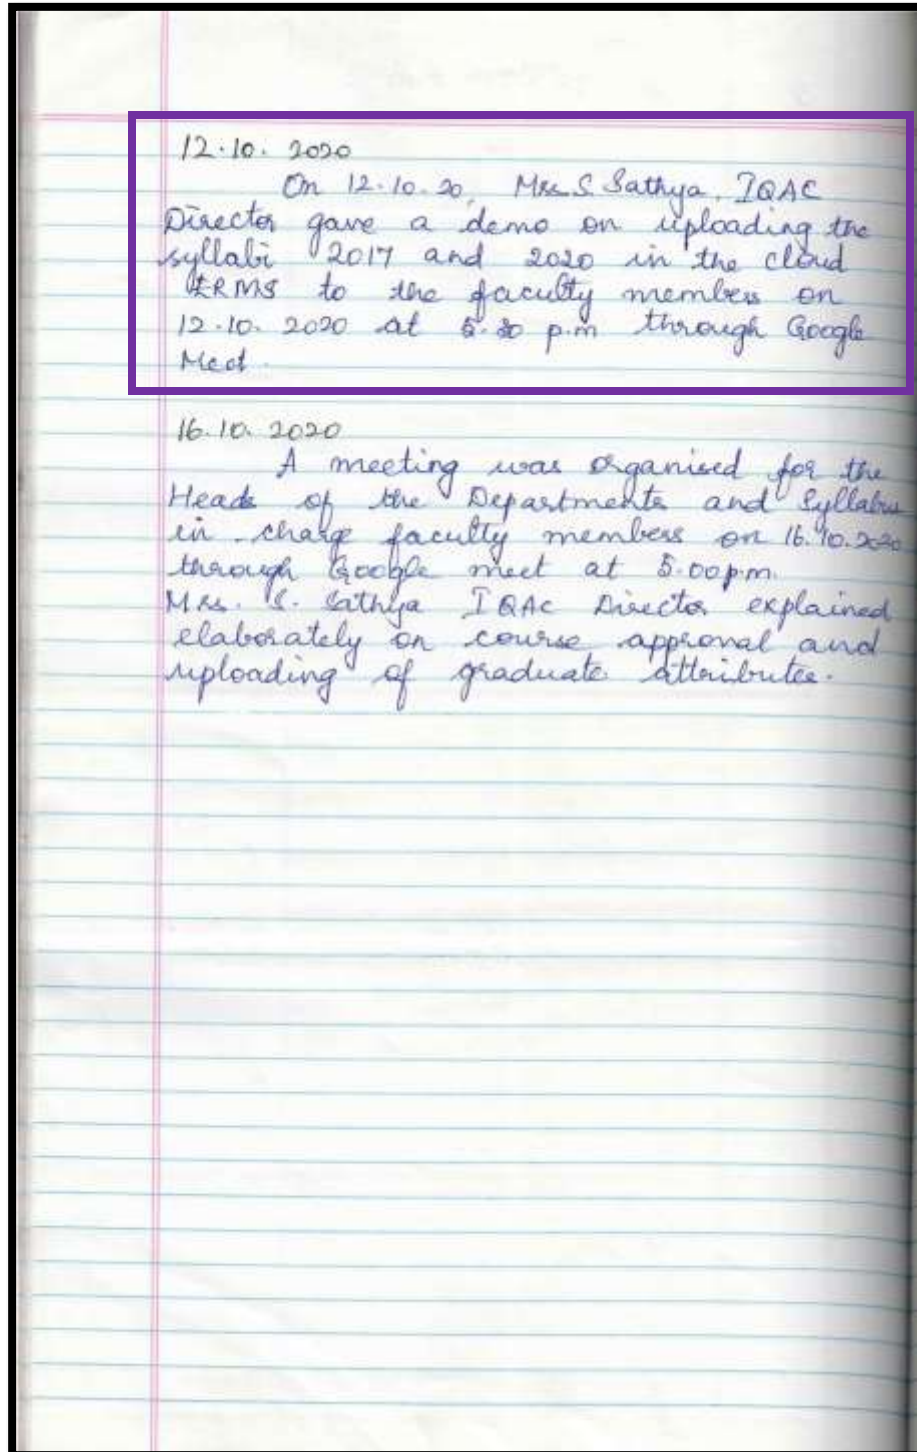 12.10.2020
On 12.10.20, Mrs. S Sathya, IQAC
Director gave a demo on uploading the
syllabi 2017 and 2020 in the cloud
to the faculty members on
12.10.2020 at p.m through Google
Meet.
16.10.2020
A meeting was organised for the
Heads of the Departments and Syllabus
in-charge faculty members on 16.10.2020
through Google meet at 5.00p.m.
Mrs. S. Sathya IQAC Director explained
elaborately on course approval and
uploading of graduate attributes.